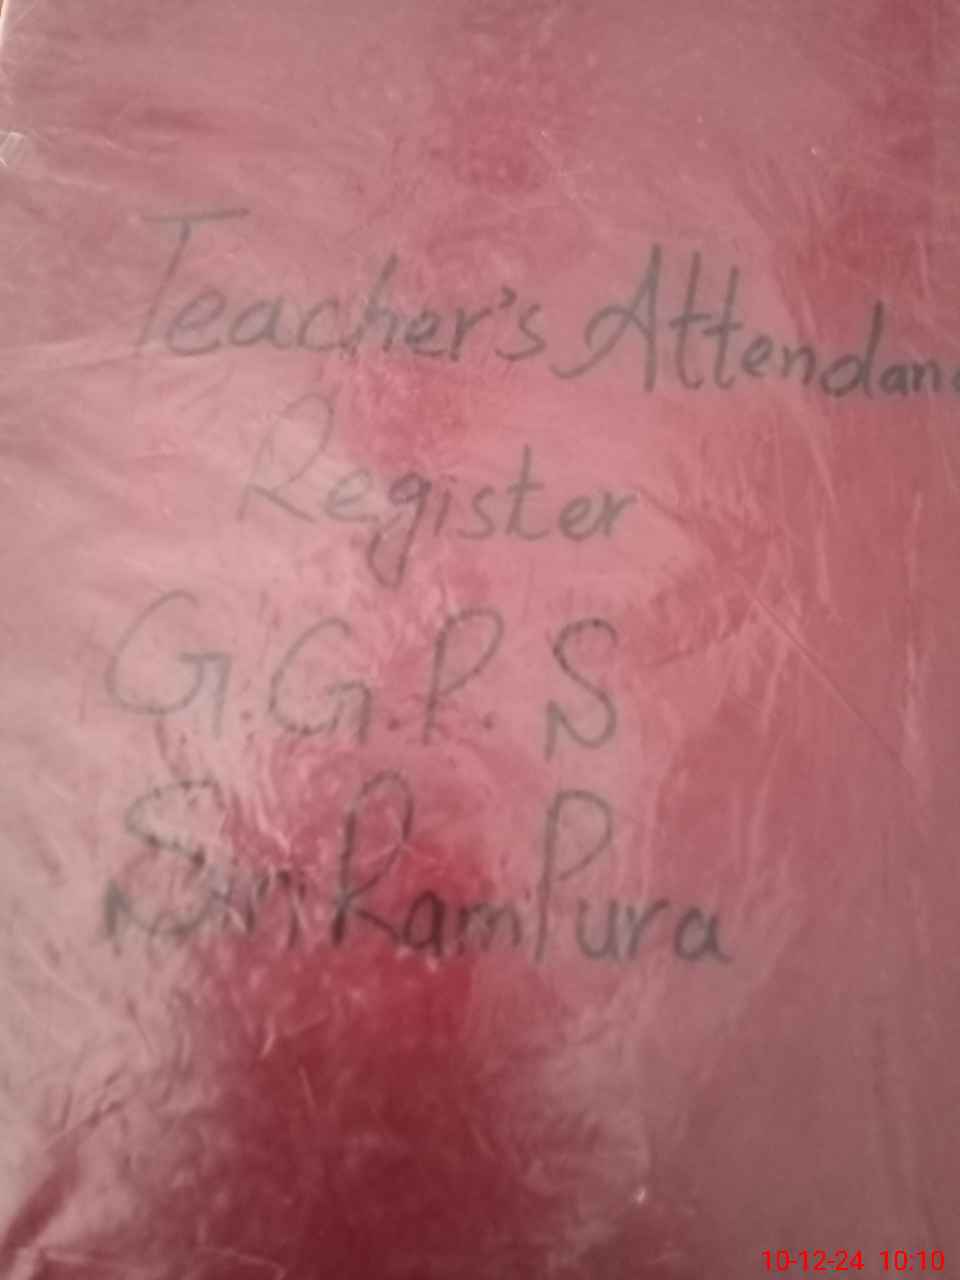 Teacher's Attendanc
Register
G.G.P.S
Siri RamPura
10-12-24 10:10